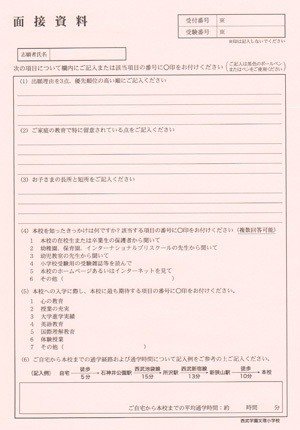 面接資料
受付番号 ※
受験番号 ※
※印は記入しないでください
志願者氏名
次の項目について欄内にご記入または該当項目の番号に〇印をお付けください
(ご記入は黒色のボールペンまたはペンをご使用ください)
(1) 出願理由を3点、優先順位の高い順にご記入ください
(2) ご家庭の教育で特に留意されている点をご記入ください
(3) お子さまの長所と短所をご記入ください
(4) 本校を知ったきっかけは何ですか？該当する項目の番号に〇印をお付けください (複数回答可能)
1 本校の在校生または卒業生の保護者から聞いて
2 幼稚園、保育園、インターナショナルプリスクールの先生から聞いて
3 幼児教室の先生から聞いて
4 小学校受験用の受験雑誌等を読んで
5 本校のホームページあるいはインターネットを見て
6 その他( )
(5) 本校への入学に際し、本校に最も期待する項目の番号に〇印をお付けください。
1 心の教育
2 授業の充実
3 大学進学実績
4 英語教育
5 国際理解教育
6 体験授業
7 その他( )
(6) ご自宅から本校までの通学経路および通学時間について記入例をご参考の上ご記入ください
(記入例) 自宅 徒歩 5分 石神井公園駅 西武池袋線 15分 所沢駅 西武新宿線 13分 新狭山駅 徒歩 10分 本校
ご自宅から本校までの平均通学時間：約 時間 分
西武学園文理小学校